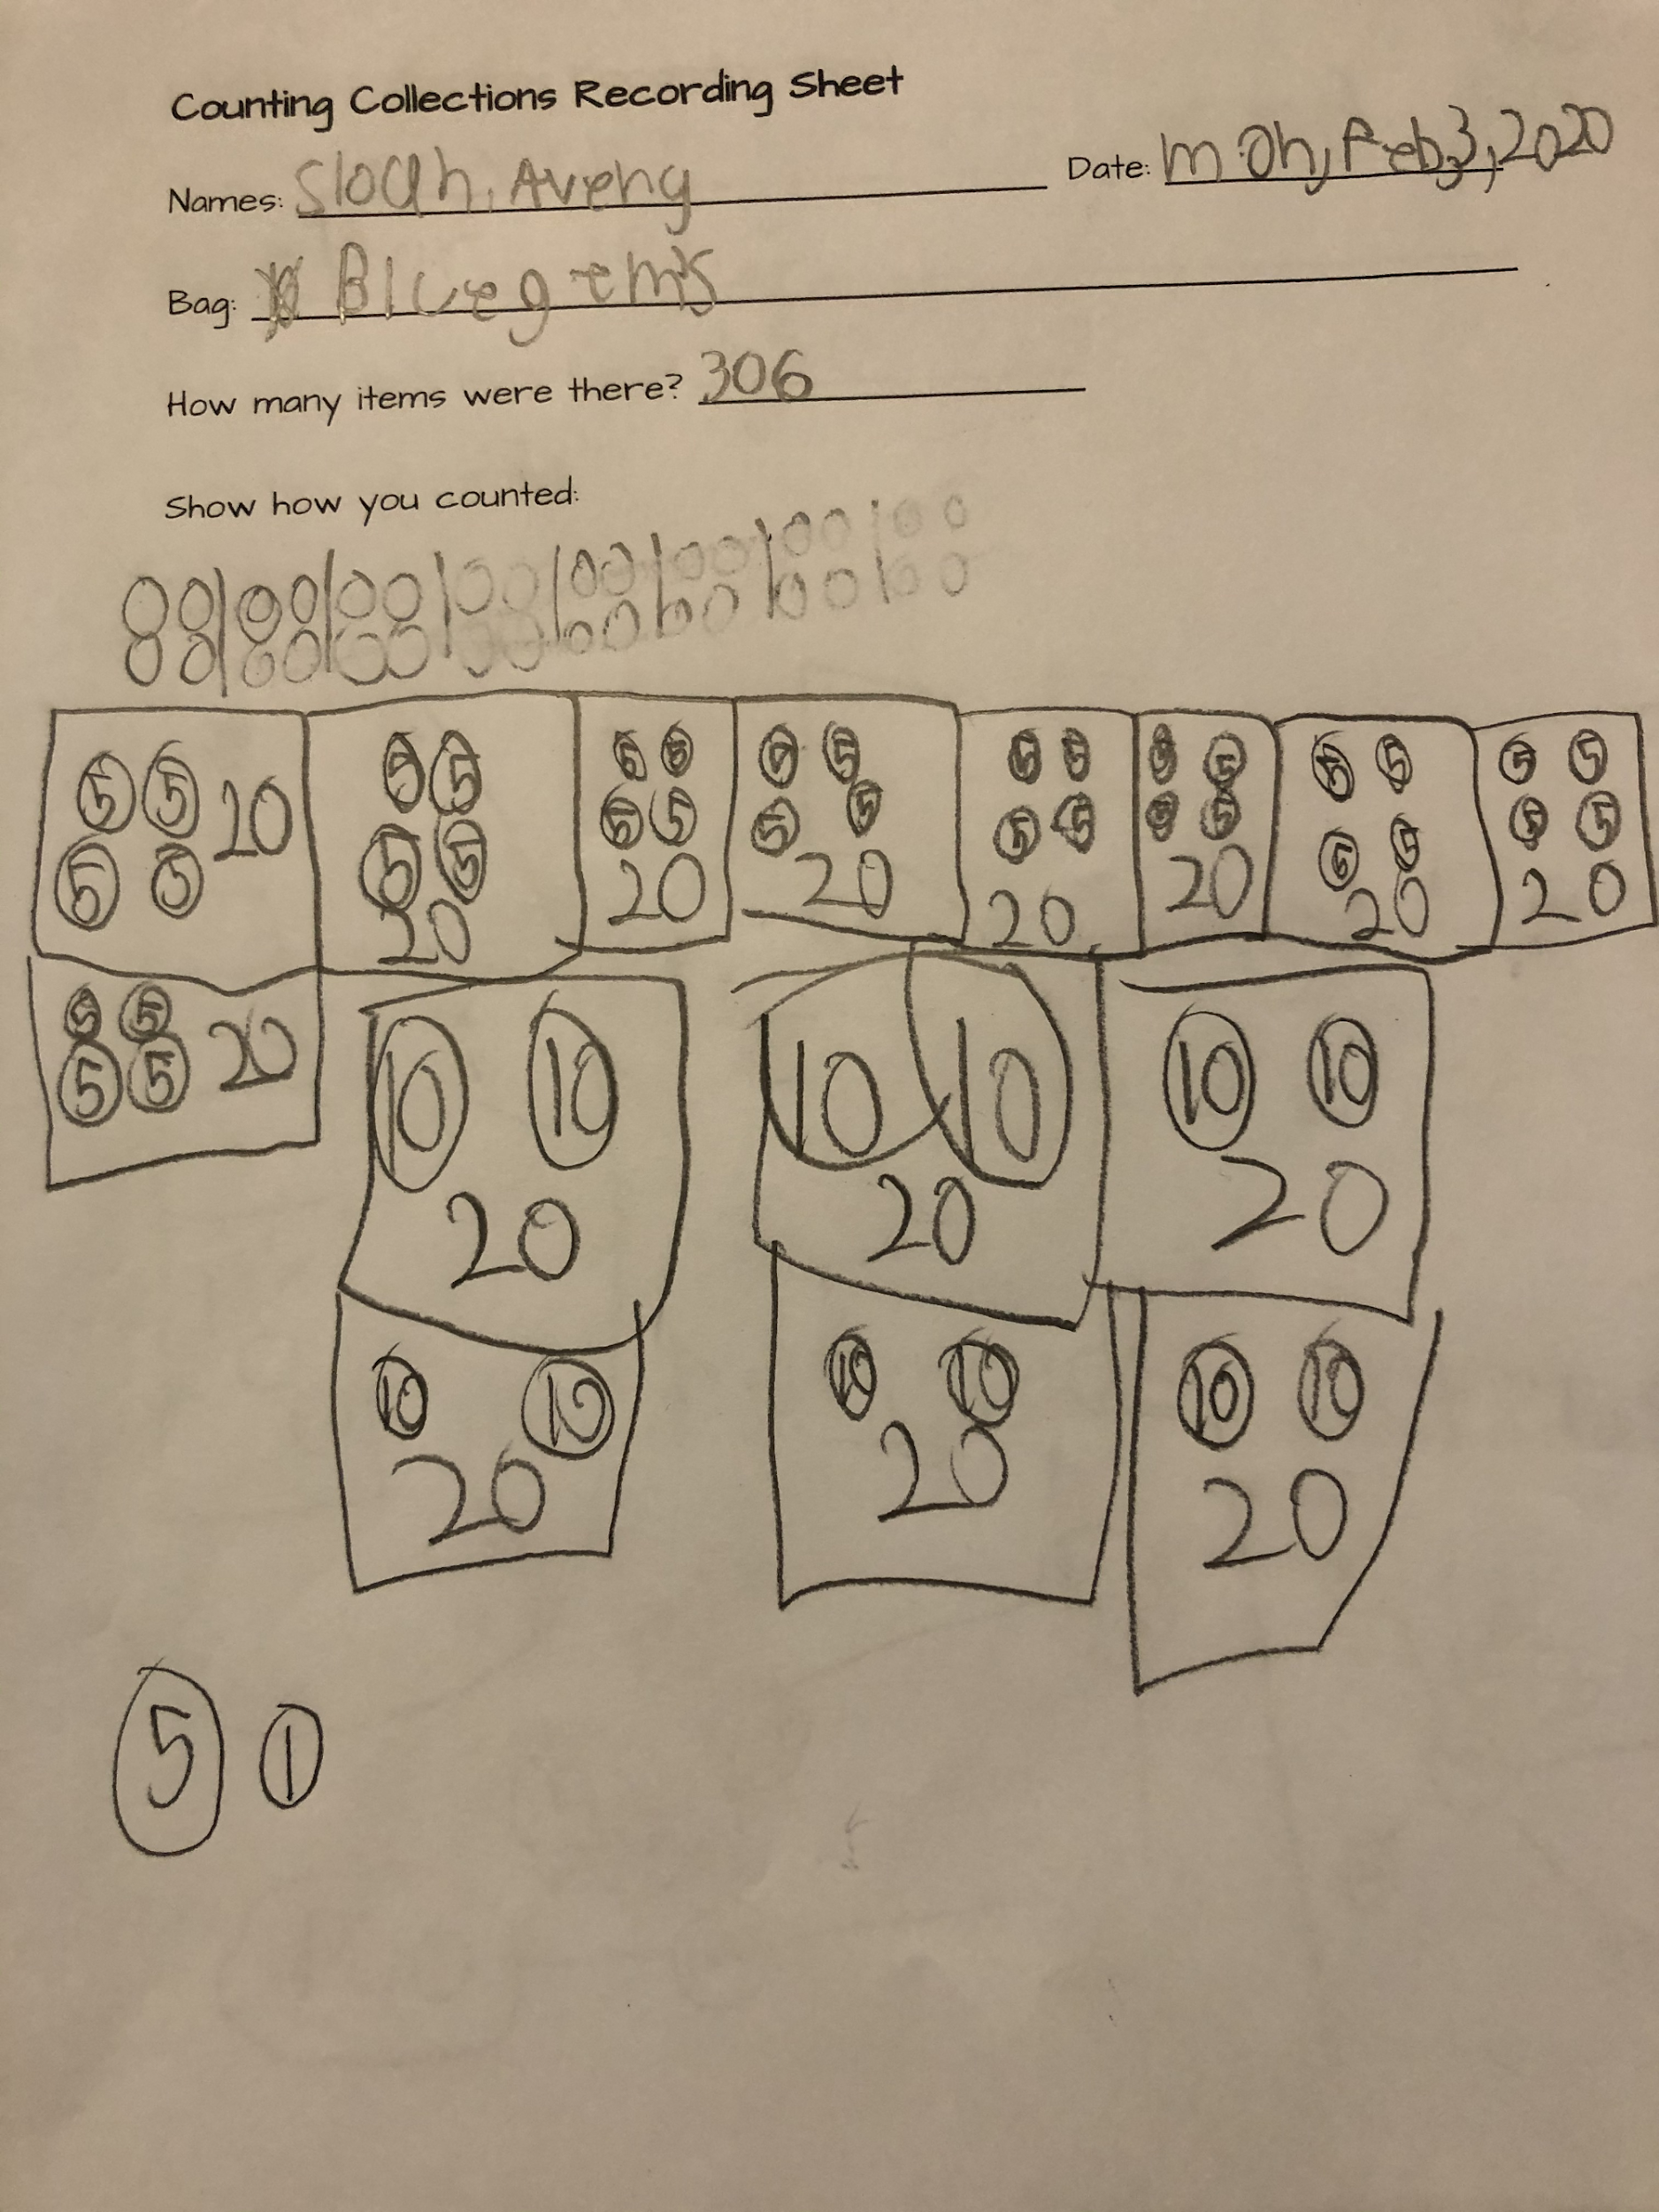 Counting Collections Recording Sheet
Names: Sloan, Aveny Date: mon, Feb, 3, 2020
Bag: Blue gems
How many items were there? 306
Show how you counted:
5 5 20 5 5 5 5 5 5 5 5 5 5 5 5 5 5
5 5 5 5 5 5 5 5 5 5 5 5 5 5 5 5
20 20 20 20 20 20 20
5 5 20 10 10 10 10 10 10
5 5
20 20 20
10 10 10 10 10 10
20 20 20
5 1